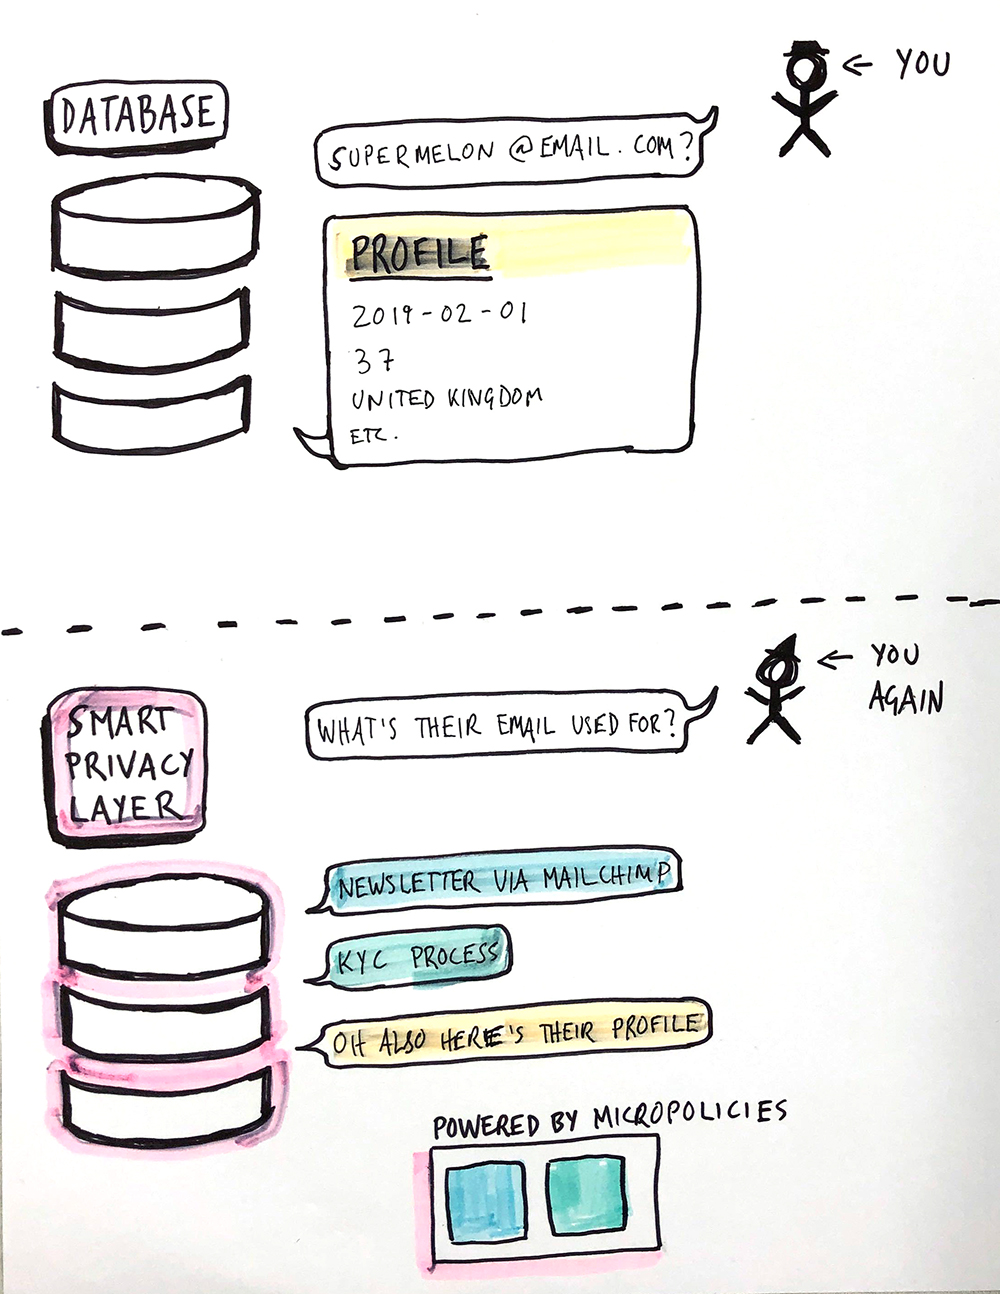 DATABASE
← YOU
SUPERMELON @EMAIL.COM?
PROFILE
2019-02-01
37
UNITED KINGDOM
ETC.
← YOU
AGAIN
SMART
PRIVACY
LAYER
WHAT'S THEIR EMAIL USED FOR?
NEWSLETTER VIA MAILCHIMP
KYC PROCESS
OH ALSO HERE'S THEIR PROFILE
POWERED BY MICROPOLICIES